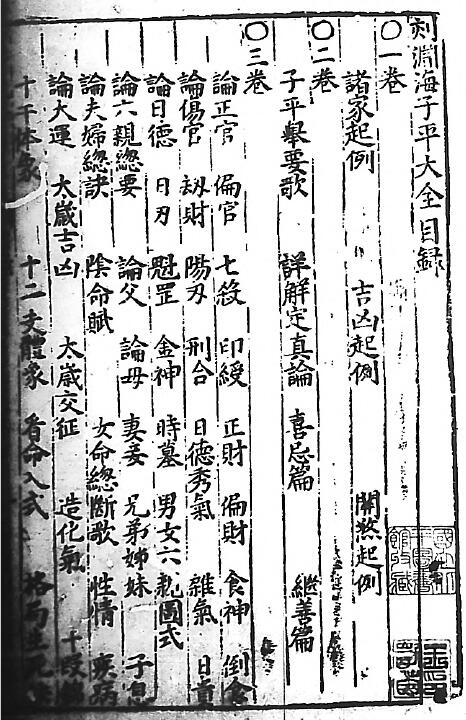 刻淵海子平大全目録
〇一巻
諸家起例 吉凶起例 關煞起例
〇二巻
子平舉要歌 詳解定真論 喜忌篇 継善篇
〇三巻
論正官 偏官 七殺 印綬 正財 偏財 食神 倒食
論傷官 刧財 陽刃 刑合 日德秀氣 雜氣 日貴
論日德 日刃 魁罡 金神 時墓 男女六親圖式
論六親總要 論父 論母 妻妾 兄弟姊妹 子息
論夫婦總訣 陰命賦 女命總斷歌 性情 疾病
論大運 太歲吉凶 太歲交征 造化氣
十干体象 十二支體象 看命入式 格局生死